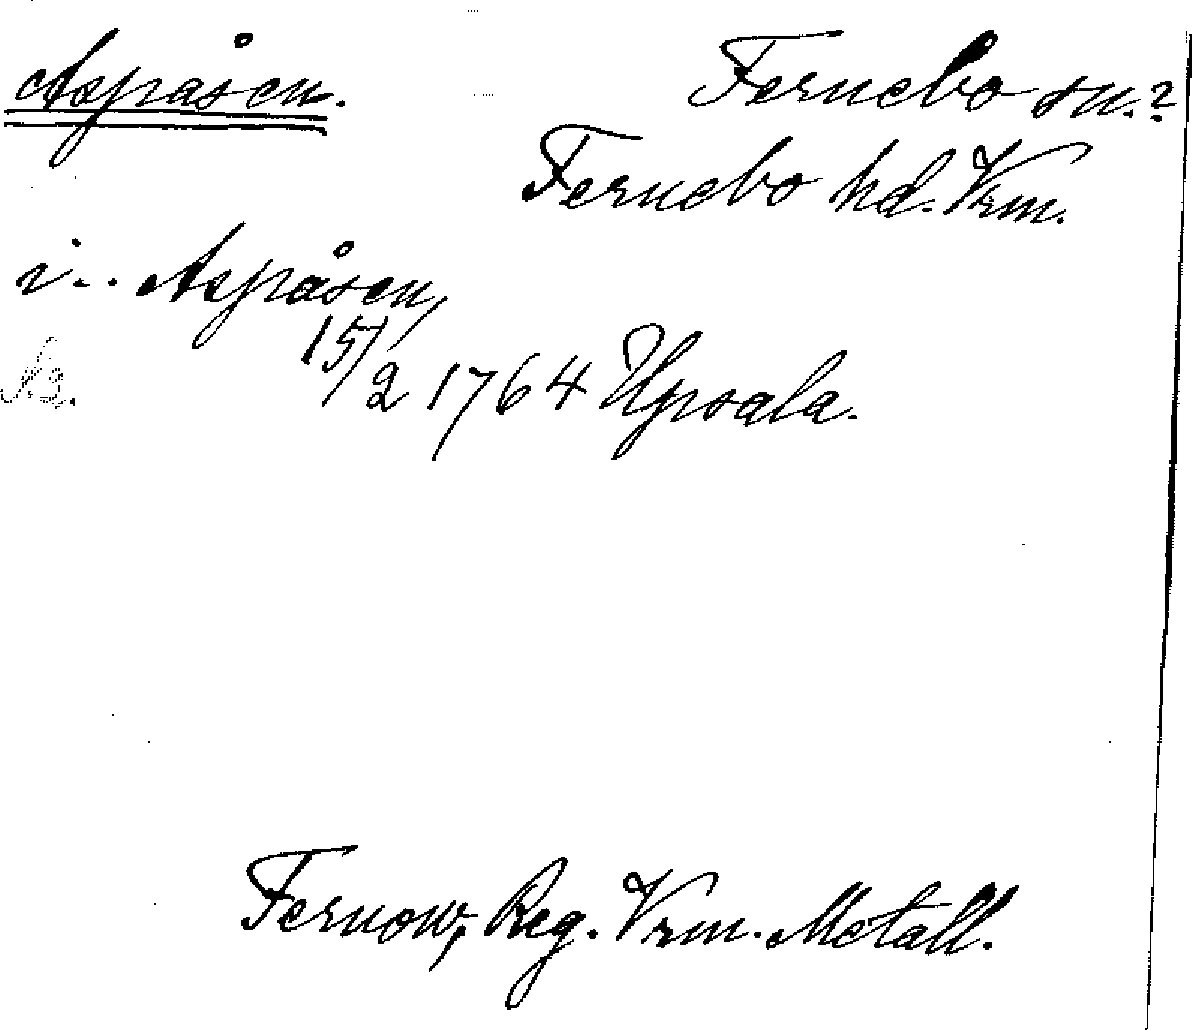 Aspåsen. Fernebo sn.?
Fernebo hd. Vrm.
i .. Aspåsen,
15/2 1764 Upsala.
Fernow, Reg. Vrm. Metall.